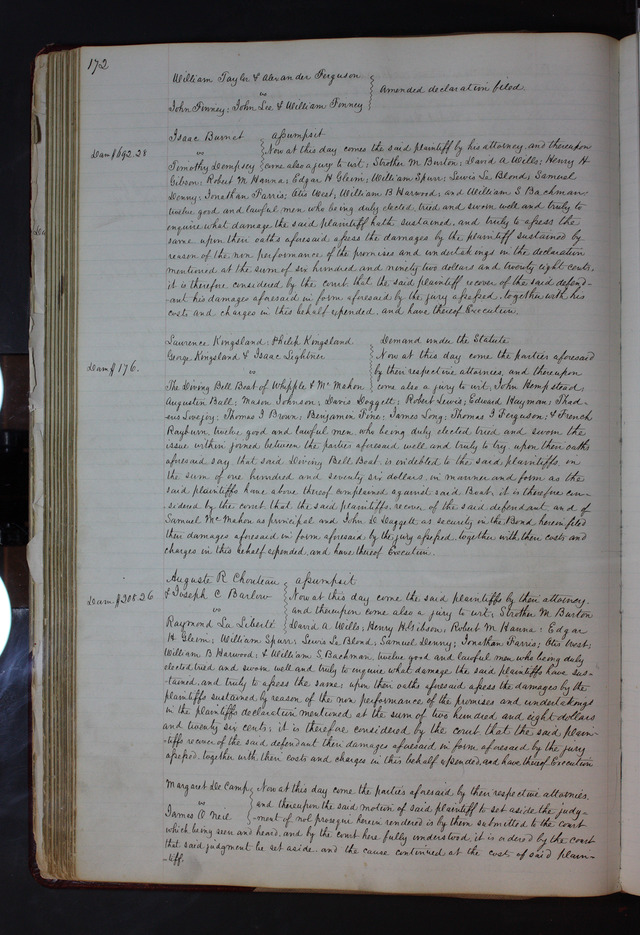 172
William Taylor & Alexander Ferguson
vs
John Finney; John Lee & William Finney
Amended declaration filed
Isaac Burnet assumpsit
Dam $692.28
vs Now at this day comes the said plaintiff by his attorney, and thereupon
Timothy Dempsey come also a jury to wit; Strother M. Burton; David A Wills; Henry H
Gibson; Robert M Hanna; Edgar H Gleim; William Spurr; Lewis La Blond; Samuel
Denny; Jonathan Farris; Otis West, William B Harwood; and William S. Bachman
twelve good and lawful men who being duly elected, tried and sworn, well and truly to
enquire what damage the said plaintiff hath sustained, and truly to assess the
same upon their oaths aforesaid assess the damages by the plaintiff sustained by
reason of the non performance of the promises and undertakings in the declaration
mentioned at the sum of six hundred and ninety two dollars and twenty eight cents,
it is therefore considered by the court that the said plaintiff recover of the said defend-
-ant his damages aforesaid in form aforesaid by the jury assessed, together with his
costs and charges in this behalf expended, and have thereof Execution.
Lawrence Kingsland; Philip Kingsland
George Kingsland & Isaac Lightner
Demand under the Statute
Dam $176.
vs
Now at this day come the parties aforesaid
by their respective attornies, and thereupon
The Diving Bell Boat of Whipple & McMahon come also a jury to wit, John Hempstead
Augustin Ball; Mason Johnson; Davis Doggett; Robert Lewis; Edward Hayman; Thad-
-eus Lovejoy; Thomas J Brown; Benjamin Fine; James Long; Thomas F Ferguson; & French
Rayburn, twelve good and lawful men, who being duly elected tried and sworn the
issue within joined between the parties aforesaid well and truly to try, upon their oaths
aforesaid say that said Diving Bell Boat is indebted to the said plaintiffs, in
the sum of one hundred and seventy six dollars, in manner and form as the
said plaintiffs have above thereof complained against said Boat; it is therefore con-
-sidered by the court that the said plaintiffs recover of the said defendant and of
Samuel McMahon as principal and John D Daggett as security on the Bond herein filed
their damages aforesaid in form aforesaid by the jury assessed, together with their costs and
charges in this behalf expended, and have thereof Execution.
Auguste R Chouteau assumpsit
& Joseph C Barlow
Dam. $208.26
Now at this day come the said plaintiffs by their attorney
vs and thereupon come also a jury to wit; Strother M. Burton
Raymond La Liberté David A Wills; Henry H Gibson; Robert M Hanna; Edgar
H. Gleim; William Spurr; Lewis La Blond; Samuel Denny; Jonathan Farris; Otis West;
William B Harwood; & William S. Bachman twelve good and lawful men, who being duly
elected tried and sworn well and truly to enquire what damage the said plaintiffs have sus-
-tained, and truly to assess the same; upon their oaths aforesaid assess the damages by the
plaintiffs sustained by reason of the non performance of the promises and undertakings
in the plaintiffs declaration mentioned at the sum of two hundred and eight dollars
and twenty six cents; it is therefore considered by the court that the said plain-
-tiffs recover of the said defendant their damages aforesaid in form aforesaid by the jury
assessed, together with their costs and charges in this behalf expended, and have thereof Execution
Margaret De Camp Now at this day come the parties aforesaid, by their respective attornies,
vs and thereupon the said motion of said plaintiff to set aside the judg-
James O Neil -ment of nol prosequi herein rendered is by them submitted to the court
which being seen and heard, and by the court here fully understood, it is ordered by the court
that said judgment be set aside, and the cause continued at the costs of said plain-
-tiff.